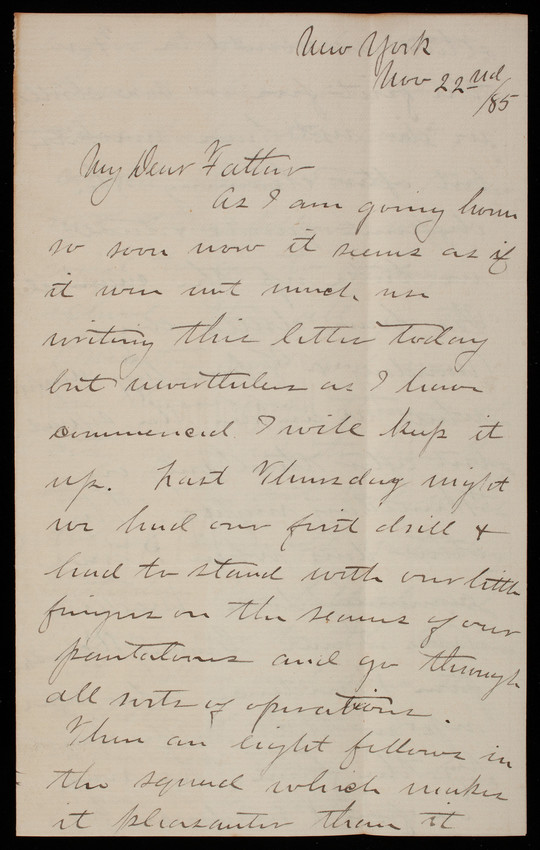 New York
Nov 22nd
/85
My Dear Father
As I am going home
so soon now it seems as if
it were not much use
writing this letter today
but nevertheless as I have
commenced I will keep it
up. Last Thursday night
we had our first drill &
had to stand with our little
fingers on the seams of our
pantaloons and go through
all sorts of operations.
There are eight fellows in
the squad which makes
it pleasanter than it